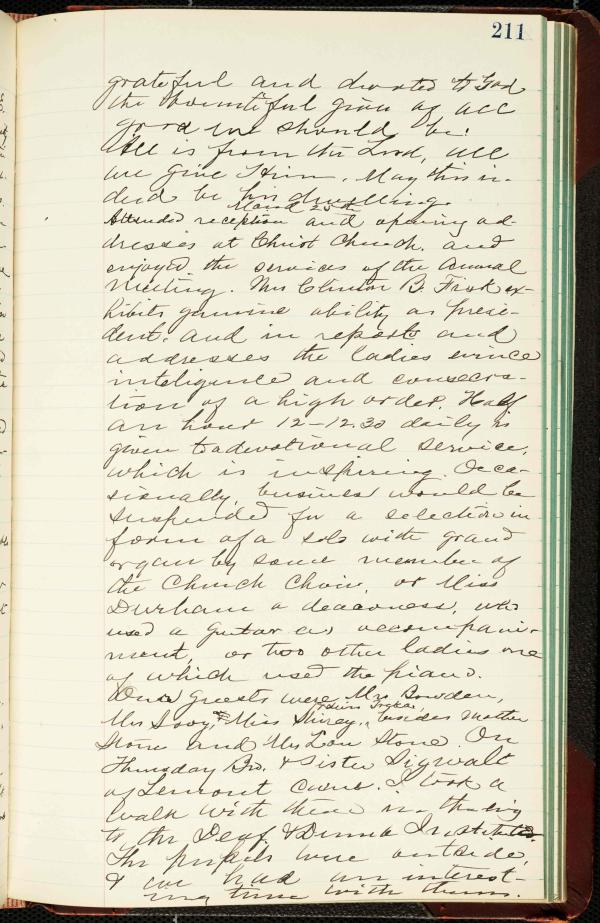 211
grateful and devoted to God
the bountiful giver of all
good we should be!
All is from the Lord, all
we give Him. May this in-
deed be his dwelling.
March 25th
Attended reception and opening ad-
dresses at Christ Church, and
enjoyed the services of the Annual
Meeting. Mrs Clinton B. Fisk ex-
hibits genuine ability as presi-
dent, and in reports and
addresses the ladies evince
inteligence and consecra-
tion of a high order. Half
an hour 12-12.30 daily is
given to a devotional service,
which is inspiring. Occa-
sionally, business would be
suspended for a selection in
form of a solo with grand
organ by some member of
the Church Choir, or Miss
Durham a deaconess, who
used a guitar as accompani-
ment, or two other ladies one
of which used the piano.
Our guests were Mrs Bowden,
Mrs & Miss besides Mother
Stone and Mrs Lou Stone. On
Thursday Bro. & Sister Sigwalt
of Lemont came. I took a
walk with them in the
to the Deaf & Dumb Institute.
The pupils were outside,
& we had an interest-
ing time with them.